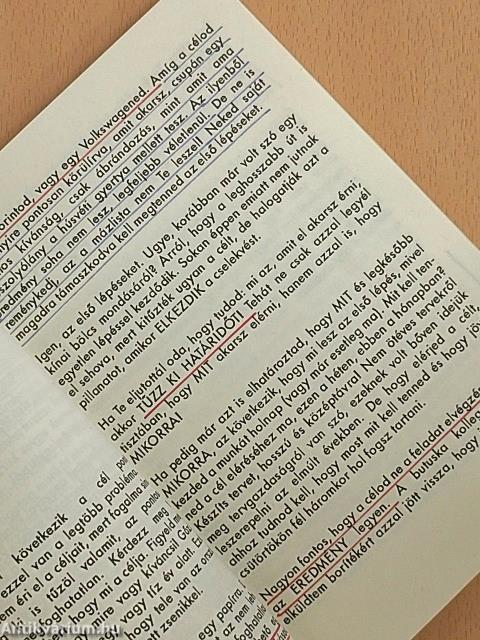 orintod, vagy egy Volkswagened. Amíg a célod
pontosan körülírva, amit akarsz, csupán egy
kívánság, csak ábrándozás, mint amit ama
szolyólány a húsvéti gyertya mellett tesz. Az ilyenből
edmény soha nem lesz, legfeljebb véletlenül. De ne is
reménykedj, az a mázlista nem Te leszel! Neked saját
magadra támaszkodva kell megtenned az első lépéseket.
Igen, az első lépéseket. Ugye, korábban már volt szó egy
kínai bölcs mondásáról? Arról, hogy a leghosszabb út is
egyetlen lépéssel kezdődik. Sokan éppen emiatt nem jutnak
el sehova, mert kitűzték ugyan a célt, de halogatják azt a
pillanatot, amikor ELKEZDIK a cselekvést.
Ha Te eljutottál oda, hogy tudod, mi az, amit el akarsz érni,
akkor TŰZZ KI HATÁRIDŐT! Tehát ne csak azzal legyél
tisztában, hogy MIT akarsz elérni, hanem azzal is, hogy
MIKORRA!
Ha pedig már azt is elhatároztad, hogy MIT és legkésőbb
MIKORRA, az következik, hogy mi lesz az első lépés, mivel
kezded a munkát holnap (vagy már esetleg ma). Mit kell ten-
ned a cél eléréséhez ma, ezen a héten, ebben a hónapban?
Készíts tervet, hosszú és középtávra! Nem ötéves tervekről
meg tervgazdaságról van szó, ezeknek volt bőven idejük
leszerepelni az elmúlt években. De hogy elérjed a célt,
ahhoz tudnod kell, hogy most mit kell tenned és hogy jö
csütörtökön fél háromkor hol fogsz tartani.
Nagyon fontos, hogy a célod ne a feladat elvégzés
az EREDMÉNY legyen. A butuska kolleg
elküldem borítékért azzal jött vissza, hogy
következik a cél
ezzel van a legtöbb probléma
em éri el a céljait, mert fogalma sin
is tűzöl valamit, az ponto
hatatlan. Kérdezz meg
hogy mi a célja. Figyeld m
vagy kíváncsi! Gáz
vagy tíz év alatt.
hogy tele van az ora
tt zsemikkel.
egy papírra,
Antikvarium.hu